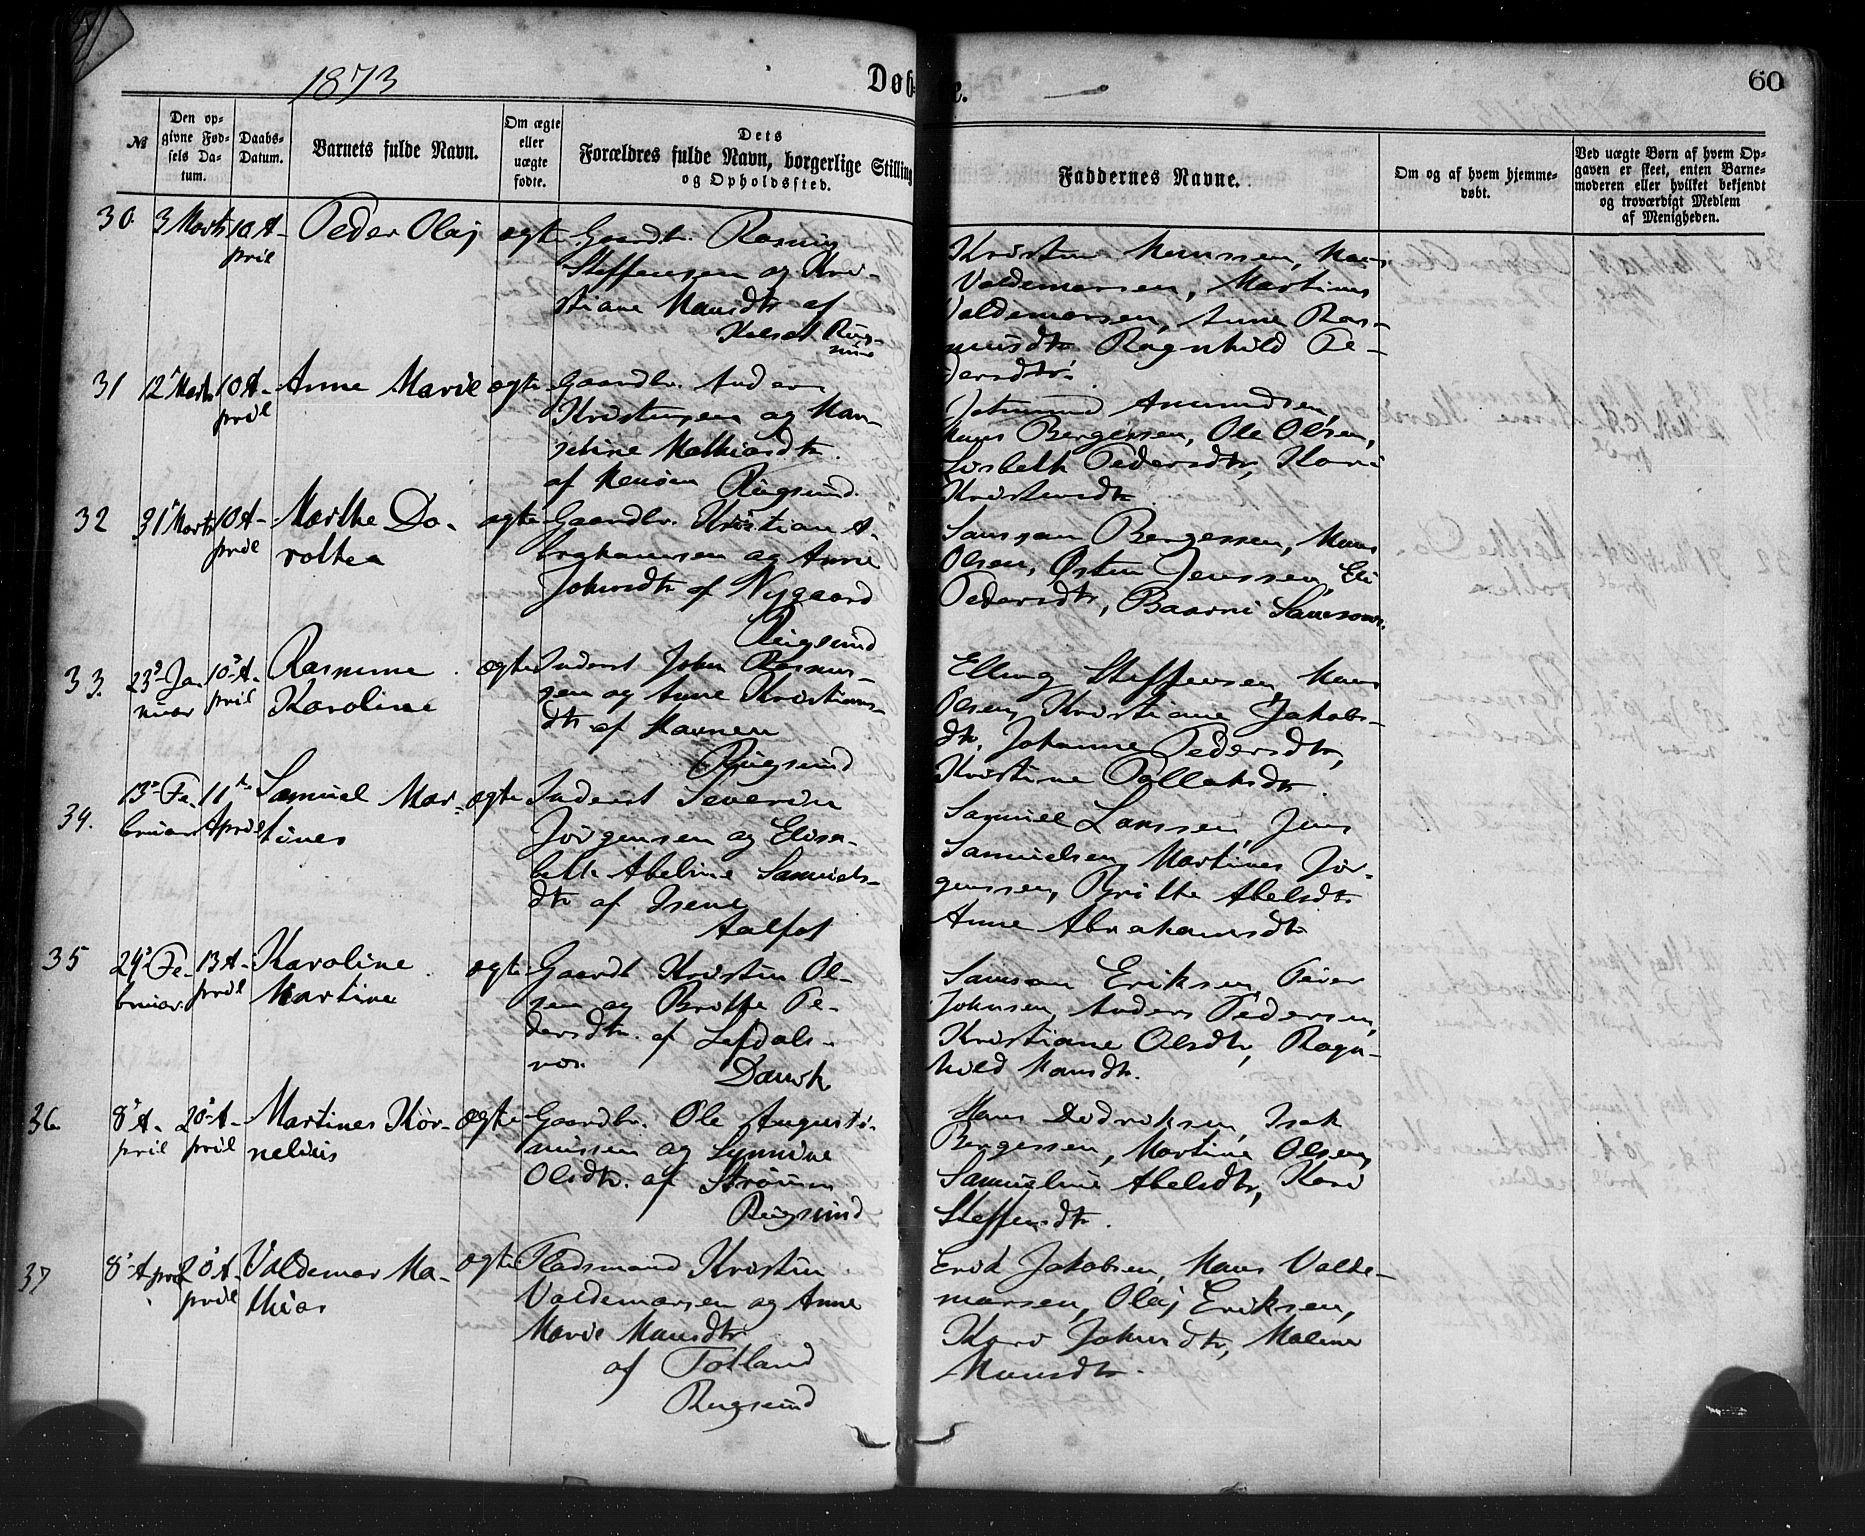 1873
Døbte.
60
№
Den opgivne Fødsels Datum.
Daabs-Datum.
Barnets fulde Navn.
Om ægte eller uægte fødte.
Dets
Forældres fulde Navn, borgerlige Stilling
og Opholdssted.
Faddernes Navne.
Om og af hvem hjemmedøbt.
Ved uægte Børn af hvem Opgaven er skeet, enten Barnemoderen eller hvilket bekjendt og troværdigt Medlem af Menigheden.
30 3 Marts 10 A-
pril
Peder Olaj
ægte
Gaardbr. Rasmus
Steffensen og Kri-
stiane Hansdtr af
Rug-
sund
Kristen Hanssen, Hans
Valdemarsen, Martinus
Valdemarsen, Anne Ras-
musdtr Ragnhild Pe-
dersdtr.
31 12 Marts 10 A-
pril
Anne Marie
ægte
Gaardbr. Anders
Kristensen og
Mathiasdtr.
af Rugsund.
Amundsen,
Hans Bergessen, Ole Olsen,
Lisbeth Pedersdtr, Kari
Kristensdtr
32 31 Marts 10 A-
pril
Marthe Do-
rothea
ægte
Gaardbr. Kristian A-
brahamsen og Anne
Johnsdtr af Nygaard
Rugsund
Samson Bergessen, Hans
Olsen, Østen Jenssen, Eli
Pedersdtr, Baarni Samsons.
33. 23 Ja-
nuar
10 A-
pril
Rasmine
Karoline
ægte
Inderst John Rasmus-
sen og Anne Kristians-
dtr af Havnen
Rugsund
Elling Steffensen, Hans
Olsen, Kristiane Jakobs-
dtr, Johanne Pedersdtr,
Kristine Pallesdtr.
34. 13 Fe-
bruar
11te
April
Samuel Mar-
tines
ægte
Inderst Severin
Jørgensen og Elisa-
beth Abeline Samuels-
dtr af Isene
Aalfot
Samuel Larssen, Jens
Samuelsen, Martines Jør-
genssen, Brithe Abelsdtr
Anne Abrahamsdtr
35 24 Fe-
bruar
13 A-
pril
Karoline
Martine
ægte
Gaardb Kristen Ol-
sen og Brithe Pe-
dersdtr. af Lefdals-
nes.
Davik
Samson Eriksen, Peder
Johnsen, Anders Pedersen,
Kristiane Olsdtr, Ragn-
hild Hansdtr.
36 8 A-
pril
20 A-
pril
Martines Kor-
nelius
ægte
Gaardbr. Ole Augusti-
nussen og
Olsdtr. af Strømmen
Rugsund
Hans Didriksen, Isak
Bergessen, Martine Olsen,
Samueline Abelsdtr, Kari
Steffensdtr.
37 8 April
20 A-
pril
Valdemar Ma-
thias
ægte
Pladsmand Kristen
Valdemarsen og Anne
Marie Hansdtr
af Totland
Rugsund
Erik Jakobsen, Hans Valde-
marsen, Olaj Eriksen,
Kari Johnsdtr, Malene
Hansdtr.